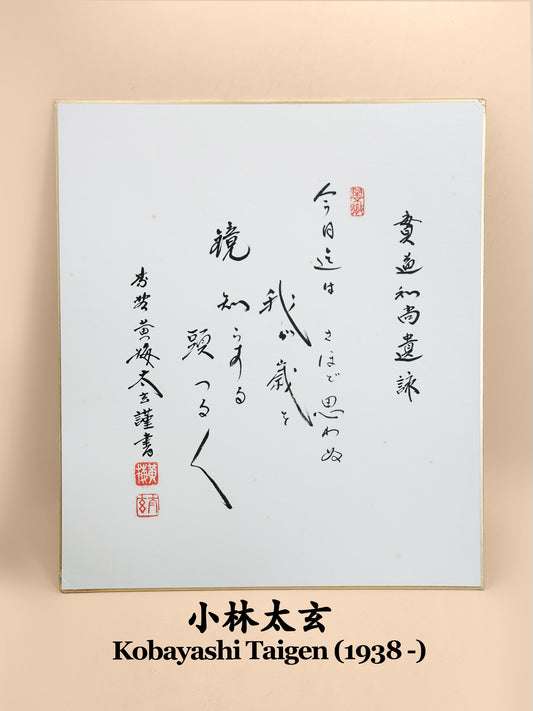 貫道和尚遺詠
今日迄は さほど思わぬ
我が歳を
鏡 知らする
頭つる〱
紫野黄梅太玄謹書
黄梅
太玄
小林太玄
Kobayashi Taigen (1938 -)